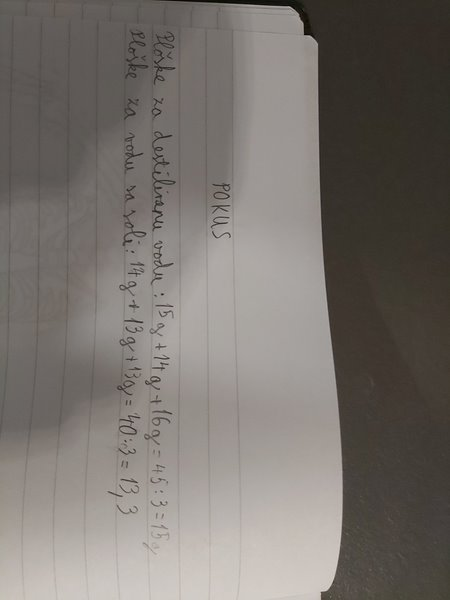 POKUS
Ploške za destiliranu vodu: 15g + 14g + 16g = 45 : 3 = 15g
Ploške za vodu sa soli: 14g + 13g + 13g = 40 : 3 = 13,3